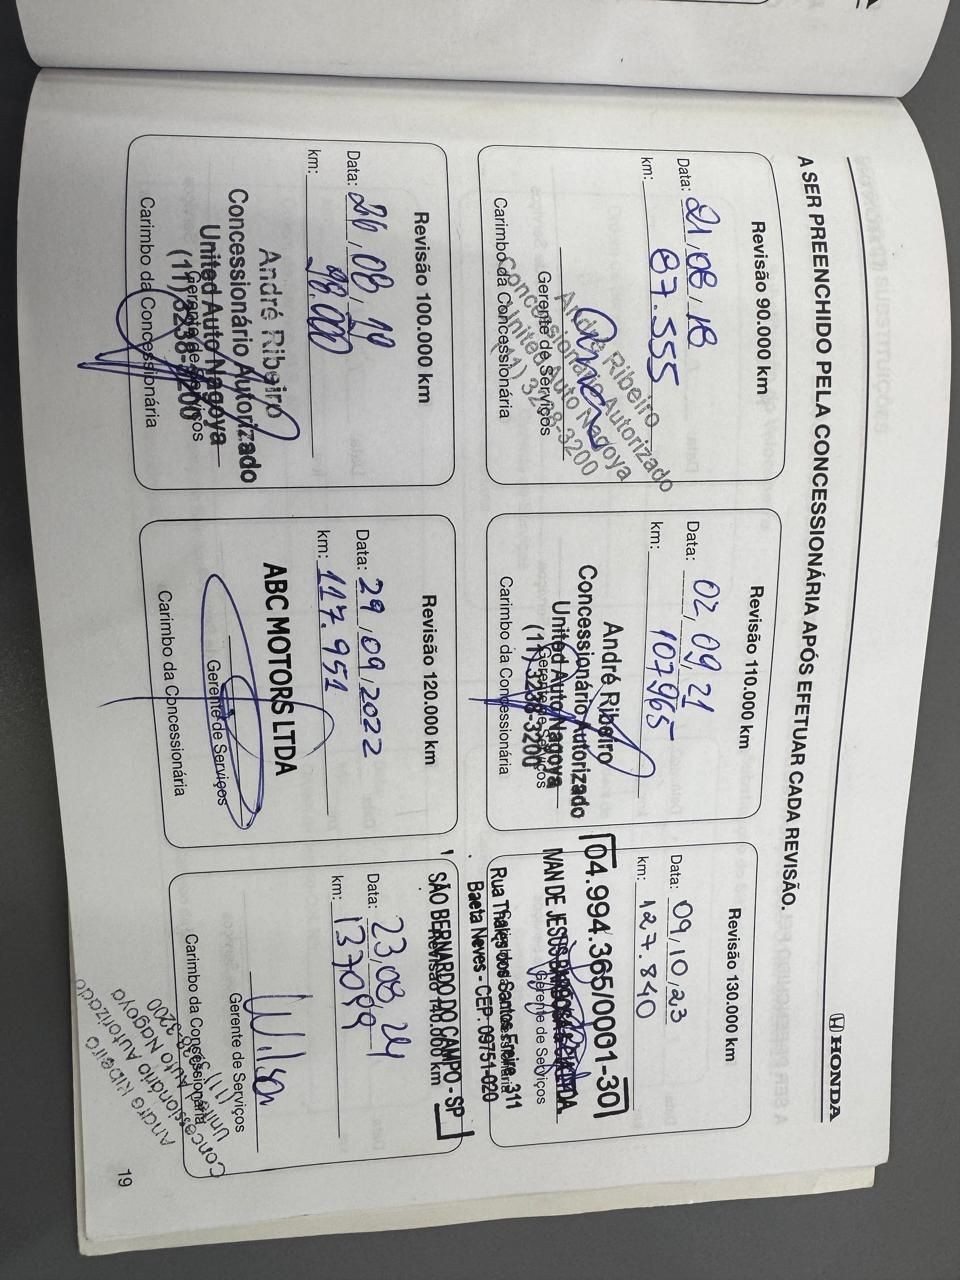 HONDA
A SER PREENCHIDO PELA CONCESSIONÁRIA APÓS EFETUAR CADA REVISÃO.
Revisão 90.000 km
Data: 21,08,18
km: 87.555
André Ribeiro
Concessionário Autorizado
United Auto Nagoya
(11) 3238-3200
Gerente de Serviços
Carimbo da Concessionária
Revisão 110.000 km
Data: 02,09,21
km: 107965
André Ribeiro
Concessionário Autorizado
United Auto Nagoya
(11) 3238-3200
Gerente de Serviços
Carimbo da Concessionária
Revisão 130.000 km
Data: 09,10,23
km: 127.840
04.994.365/0001-30
IVAN DE JESUS
Gerente de Serviços
Rua Thales dos Santos Freire, 311
Baeta Neves - CEP. 09751-020
SÃO BERNARDO DO CAMPO - SP
Revisão 100.000 km
Data: 26,08,
km: 98.000
André Ribeiro
Concessionário Autorizado
United Auto Nagoya
(11) 3238-3200
Gerente de Serviços
Carimbo da Concessionária
Revisão 120.000 km
Data: 29,09,2022
km: 117.951
ABC MOTORS LTDA
Gerente de Serviços
Carimbo da Concessionária
Revisão 140.000 km
Data: 23,08,24
km: 137099
Wilson
Gerente de Serviços
Carimbo da Concessionária
André Ribeiro
Concessionário Autorizado
United Auto Nagoya
(11) 3238-3200
19